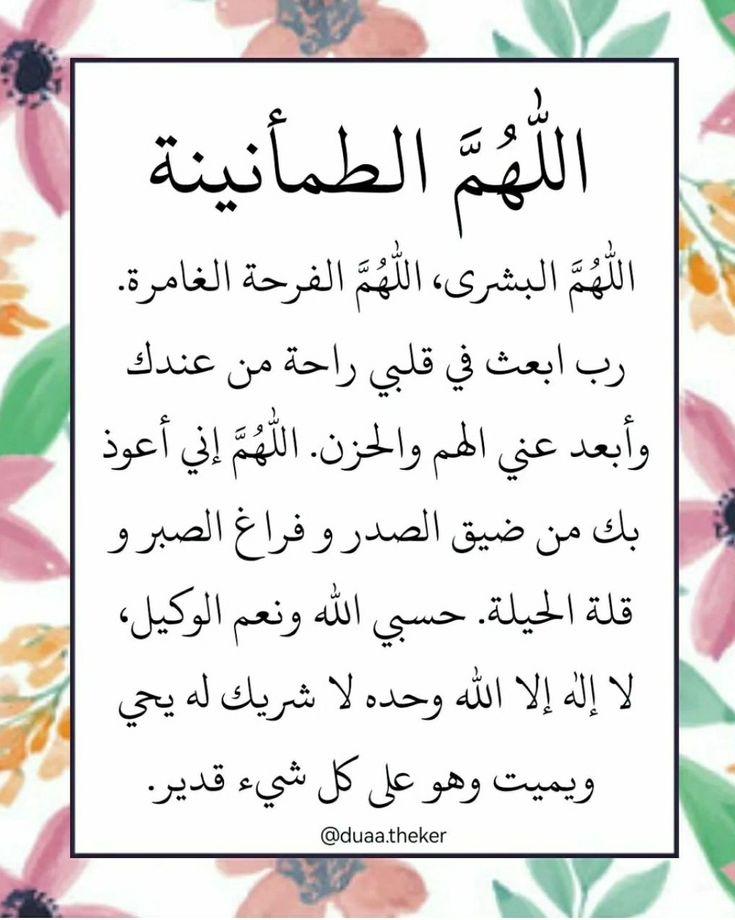 اللّٰهُمَّ الطمأنينة
اللّٰهُمَّ البشرى، اللّٰهُمَّ الفرحة الغامرة.
رب ابعث في قلبي راحة من عندك
وأبعد عني الهم والحزن. اللّٰهُمَّ إني أعوذ
بك من ضيق الصدر و فراغ الصبر و
قلة الحيلة. حسبي الله ونعم الوكيل،
لا إلٰه إلا الله وحده لا شريك له يحي
ويميت وهو على كل شيء قدير.
@duaa.theker